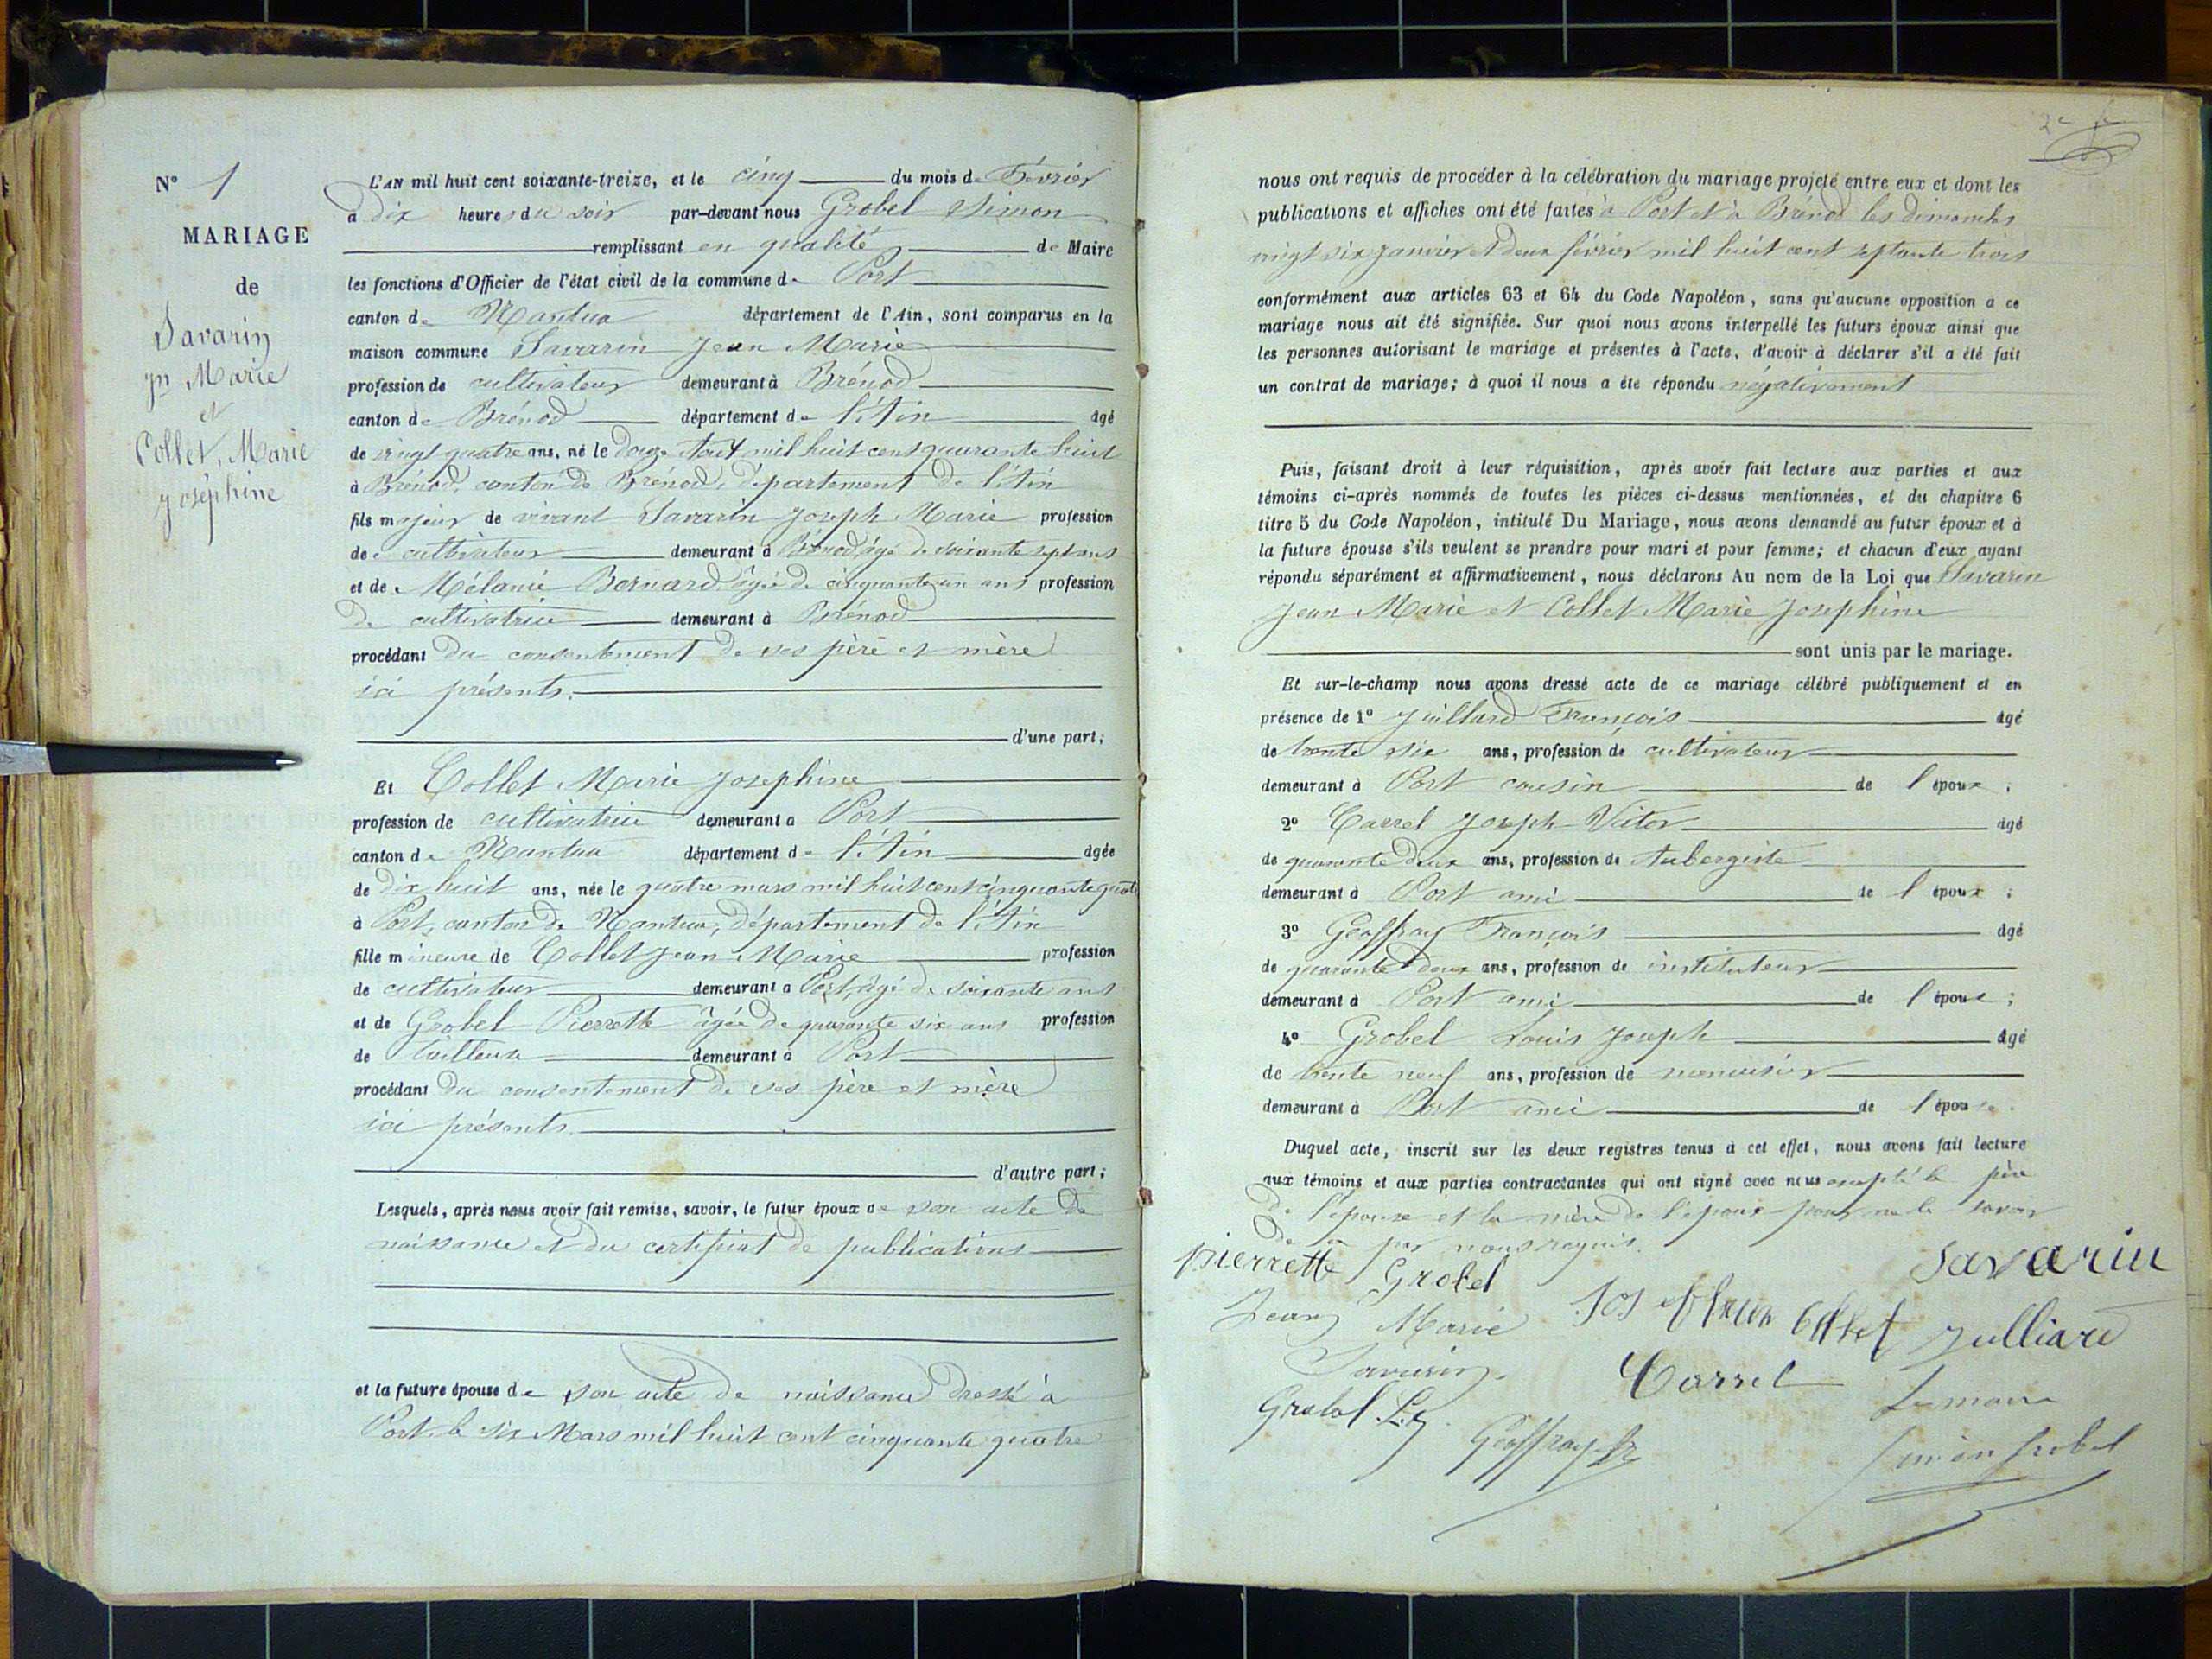 N° 1
MARIAGE
de
Savarin
Jn Marie
et
Collet, Marie
Joséphine
L'AN mil huit cent soixante-treize, et le cinq du mois de Février
à dix heures du soir par-devant nous Grobel Simon
remplissant en qualité de Maire
les fonctions d'Officier de l'état civil de la commune de Port
canton de Nantua département de l'Ain, sont comparus en la
maison commune Savarin Jean Marie
profession de cultivateur demeurant à Brénod
canton de Brénod département de l'Ain âgé
de vingt quatre ans, né le douze Aout mil huit cent quarante huit
à Brénod, canton de Brénod, département de l'Ain
fils majeur de vivant Savarin Joseph Marie profession
de cultivateur demeurant à Brénod âgé de soixante sept ans
et de Mélanie Bernard âgée de cinquante un ans profession
de cultivatrice demeurant à Brénod
procédant du consentement de ses père et mère
ici présents.
d'une part;
Et Collet Marie Josephine
profession de cultivatrice demeurant à Port
canton de Nantua département de l'Ain âgée
de dix huit ans, née le quatre mars mil huit cent cinquante quatre
à Port, canton de Nantua, département de l'Ain
fille mineure de Collet Jean Marie profession
de cultivateur demeurant à Port, âgé de soixante ans
et de Grobel Pierrette âgée de quarante six ans profession
de tailleuse demeurant à Port
procédant du consentement de ses père et mère
ici présents.
d'autre part;
Lesquels, après nous avoir fait remise, savoir, le futur époux de son acte de
naissance et du certificat de publications
et la future épouse de son acte de naissance dressé à
Port, le six Mars mil huit cent cinquante quatre
nous ont requis de procéder à la célébration du mariage projeté entre eux et dont les
publications et affiches ont été faites à Port et à Brénod les dimanches
vingt six janvier et deux février mil huit cent septante trois
conformément aux articles 63 et 64 du Code Napoléon, sans qu'aucune opposition a ce
mariage nous ait été signifiée. Sur quoi nous avons interpellé les futurs époux ainsi que
les personnes autorisant le mariage et présentes à l'acte, d'avoir à déclarer s'il a été fait
un contrat de mariage; à quoi il nous a été répondu négativement
Puis, faisant droit à leur réquisition, après avoir fait lecture aux parties et aux
témoins ci-après nommés de toutes les pièces ci-dessus mentionnées, et du chapitre 6
titre 5 du Code Napoléon, intitulé Du Mariage, nous avons demandé au futur époux et à
la future épouse s'ils veulent se prendre pour mari et pour femme; et chacun d'eux ayant
répondu séparément et affirmativement, nous déclarons Au nom de la Loi que Savarin
Jean Marie et Collet Marie Josephine
sont unis par le mariage.
Et sur-le-champ nous avons dressé acte de ce mariage célébré publiquement et en
présence de 1° Juillard François âgé
de trente six ans, profession de cultivateur
demeurant à Port cousin de l'époux;
2° Carrel Joseph Victor âgé
de quarante deux ans, profession de Aubergiste
demeurant à Port ami de l'époux;
3° Geoffray François âgé
de quarante deux ans, profession de instituteur
demeurant à Port ami de l'épouse;
4° Grobel Louis Joseph âgé
de trente neuf ans, profession de menuisier
demeurant à Port ami de l'épouse.
Duquel acte, inscrit sur les deux registres tenus à cet effet, nous avons fait lecture
aux témoins et aux parties contractantes qui ont signé avec nous excepté le père
de l'épouse et la mère de l'époux pour ne le savoir
de ce par nous requis.
pierrette Grobel
Savarin
Jean Marie
Savarin
Josephine Collet
Julliard
Carrel
Grobel L. J.
Geoffray fr
Simon Grobel